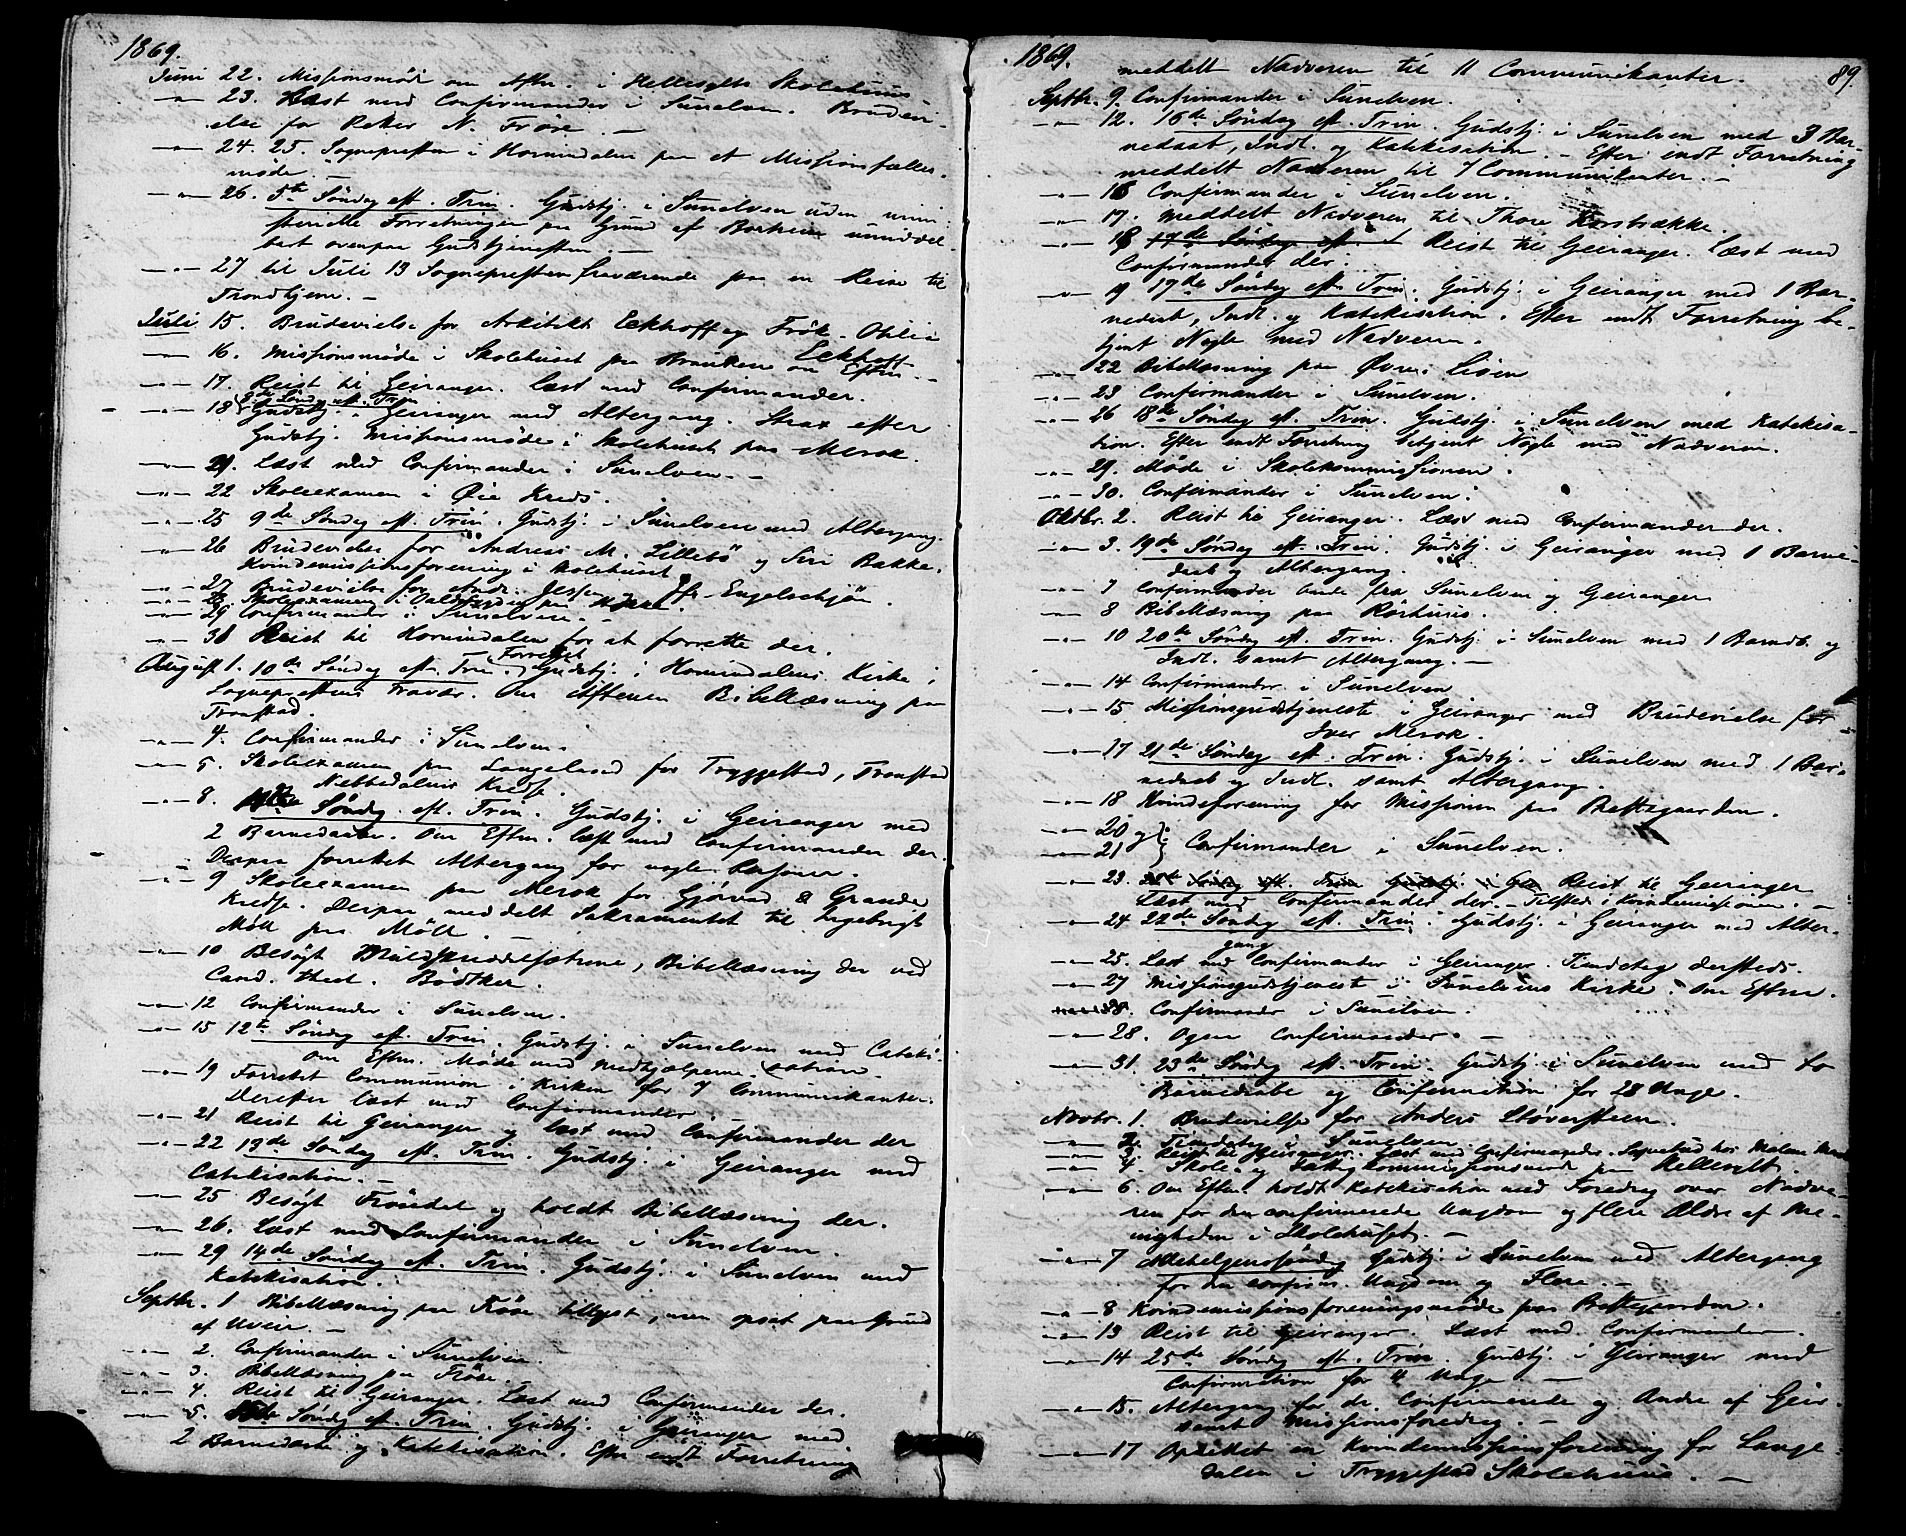 1869.
Juni 22. Missionsmöde om Aftn. i Hellesylts Skolehuus
-"- 23. Læst med Confirmander i Sunelven. Brudevi-
else for Peker N. Fröse. -
-"- 24. 25. Sognepresten i Hornindalen paa et Missionsfælles-
möde. -
-"- 26. 5te Söndag eft. Trin. Gudstj. i Sunelven uden mini-
sterielle Forretninger paa Grund af umiddel-
bart ovenpaa Gudstjenesten. -
-"- 27 til Juli 13 Sognepresten fraværende paa en Reise til
Trondhjem. -
Juli 15. Brudevielse for Arkitekt Eckhoff og Frök. Otilia
Eckhoff.
-"- 16. Missionsmöde i Skolehuset paa om Eftm. -
-"- 17. Reist til Geiranger. Læst med Confirmander.
8de Söndag eft. Trin
-"- 18 Gudstj. i Geiranger med Altergang. Strax efter
Gudstj. Missionsmöde i Skolehuset paa Merok.
-"- 21. Læst med Confirmander i Sunelven. -
-"- 22 Skoleexamen i Öie Kreds.
-"- 25 9de Söndag eft. Trin. Gudstj. i Sunelven med Altergang.
-"- 26 Brudevielse for Andreas M. Lillebö og Siri Bakke.
Kvindemissionsforening i Skolehuset
-"- 27 Brudevielse for Andr. Engelschjön.
-"- 28 Skoleexamen i
-"- 29 Confirmander i Sunelven. -
-"- 31 Reist til Hornindalen for at forrette der.
August 1. 10de Söndag eft. Trin. Forrettet Gudstj. i Hornindalens Kirke i
Sogneprestens Fravær. Om Aftenen Bibellæsning paa
Tronstad.
-"- 4. Confirmander i Sunelven.
-"- 5. Skoleexamen paa Langeland for Tryggestad, Tronstad
og Nebbedalens Kredse.
-"- 8. 11te Söndag eft. Trin. Gudstj. i Geiranger med
2 Barnedaabe. Om Eftm. læst med Confirmander der.
Derpaa forrettet Altergang for nogle Personer.
-"- 9 Skoleexamen paa Merok for Gjörvad & Grande
Kredse. Derpaa meddelt Sakramentet til Ingebrigt
Möll paa Möll. -
-"- 10 Besögt , Bibellæsning der ved
Cand. theol. Bödtker.
-"- 12 Confirmander i Sunelven.
-"- 15 12te Söndag eft. Trin. Gudstj. i Sunelven med Cateki-
sation.
om Eftm. Möde med Medhjælperne.
-"- 19 Forrettet Communion i Kirken for 7 Communikanter.
Derefter læst med Confirmander.
-"- 21 Reist til Geiranger og læst med Confirmander der
-"- 22 13de Söndag eft. Trin. Gudstj. i Geiranger med
Catekisation. -
-"- 25 Besögt Fröndal og holdt Bibellæsning der.
-"- 26. Læst med Confirmander i Sunelven.
-"- 29 14de Söndag eft. Trin. Gudstj. i Sunelven med
Katekisation.
Septbr. 1 Bibellæsning paa Fröse tillyst, men opsat paa Grund
af Uveir. -
-"- 2. Confirmander i Sunelven.
-"- 3. Bibellæsning paa Fröse.
-"- 4. Reist til Geiranger. Læst med Confirmander der.
-"- 5. 15de Söndag eft. Trin. Gudstj. i Geiranger med
2 Barnedaabe og Katekisation. Efter endt Forretning
1869.
89.
meddelt Nadveren til 11 Communikanter.
Septbr. 9. Confirmander i Sunelven.
-"- 12. 16de Söndag eft. Trin. Gudstj. i Sunelven med 3 Bar-
nedaab, Indl. og Katekisation. - Efter endt Forretning
meddelt Nadveren til 7 Communikanter. -
-"- 16 Confirmander i Sunelven.
-"- 17. meddelt Nadveren til Thore Korsbrække.
-"- 18 17de Söndag eft. Reist til Geiranger. Læst med
Confirmander der.
-"- 19 17de Söndag eft. Trin. Gudstj. i Geiranger med 1 Bar-
nedaab, Indl. og Katekisation. Efter endt Forretning be-
tjent Nogle med Nadveren.
-"- 22 Bibellæsning paa Övre Lien
-"- 23 Confirmander i Sunelven.
-"- 26 18de Söndag eft. Trin. Gudstj. i Sunelven med Katekisa-
tion. Efter endt Forretning betjent Nogle med Nadveren.
-"- 29. Möde i Skolekommissionen.
-"- 30. Confirmander i Sunelven.
Oktbr. 2. Reist til Geiranger. Læst med Confirmander der.
-"- 3. 19de Söndag eft. Trin. Gudstj. i Geiranger med 1 Barne-
daab og Altergang.
-"- 7 Confirmander baade fra Sunelven og Geiranger
-"- 8 Bibellæsning paa Rörhuus.
-"- 10 20de Söndag eft. Trin. Gudstj. i Sunelven med 1 Barndb. og
Indl. samt Altergang. -
-"- 14 Confirmander i Sunelven
-"- 15 Missionsgudstjeneste i Geiranger med Brudevielse for
Iver Merok.
-"- 17 21de Söndag eft. Trin. Gudstj. i Sunelven med 1 Bar-
nedaab og Indl. samt Altergang.
-"- 18 Kvindeforening for Missionen paa Prestegaarden.
-"- 20 og
-"- 21 Confirmander i Sunelven.
-"- 23. Söndag eft. Trin Gudstj. i Gei Reist til Geiranger
Læst med Confirmander der. - Tilsted i Kvindemissionen. -
-"- 24 22de Söndag eft. Trin. Gudstj. i Geiranger med Alter-
gang
-"- 25. Læst med Confirmander i Geiranger. Tiendetag dersteds.
-"- 27 Missionsgudstjeneste i Sunelvens Kirke. om Eftm.
-"- 28. Confirmander i Sunelven.
-"- 28. Ogsaa Confirmander. -
-"- 31. 23de Söndag eft. Trin. Gudstj. i Sunelven med to
Barnedaabe og Confirmation for 28 Unge.
Novbr. 1. Brudevielse for Anders Stöversteen.
-"- 2. Tiendetag i Sunelven.
-"- 3. Reist til Geiranger. Læst med Confirmander. Sognebud hos
-"- 4. Skole- og Fattigkommissionsmöde paa Hellesylt.
-"- 6. Om Eftm. holdt Katekisation med Foredrag over Nadve-
ren for den confirmerede Ungdom og flere Ældre af Me-
nigheden i Skolehuset. -
-"- 7 Allehelgenssöndag Gudstj. i Sunelven med Altergang
for den confirm. Ungdom og Flere. -
-"- 8 Kvindemissionsforeningsmöde paa Prestegaarden.
-"- 13 Reist til Geiranger. Læst med Confirmander.
-"- 14 25de Söndag eft. Trin. Gudstj. i Geiranger med
Confirmation for 11 Unge -
-"- 15. Altergang for de Confirmerede og Andre af Geir.
samt Missionsforedrag. -
-"- 17 Oprettet en Kvindemissionsforening for Lange-
dalen i Tryggestad Skolehuus. -